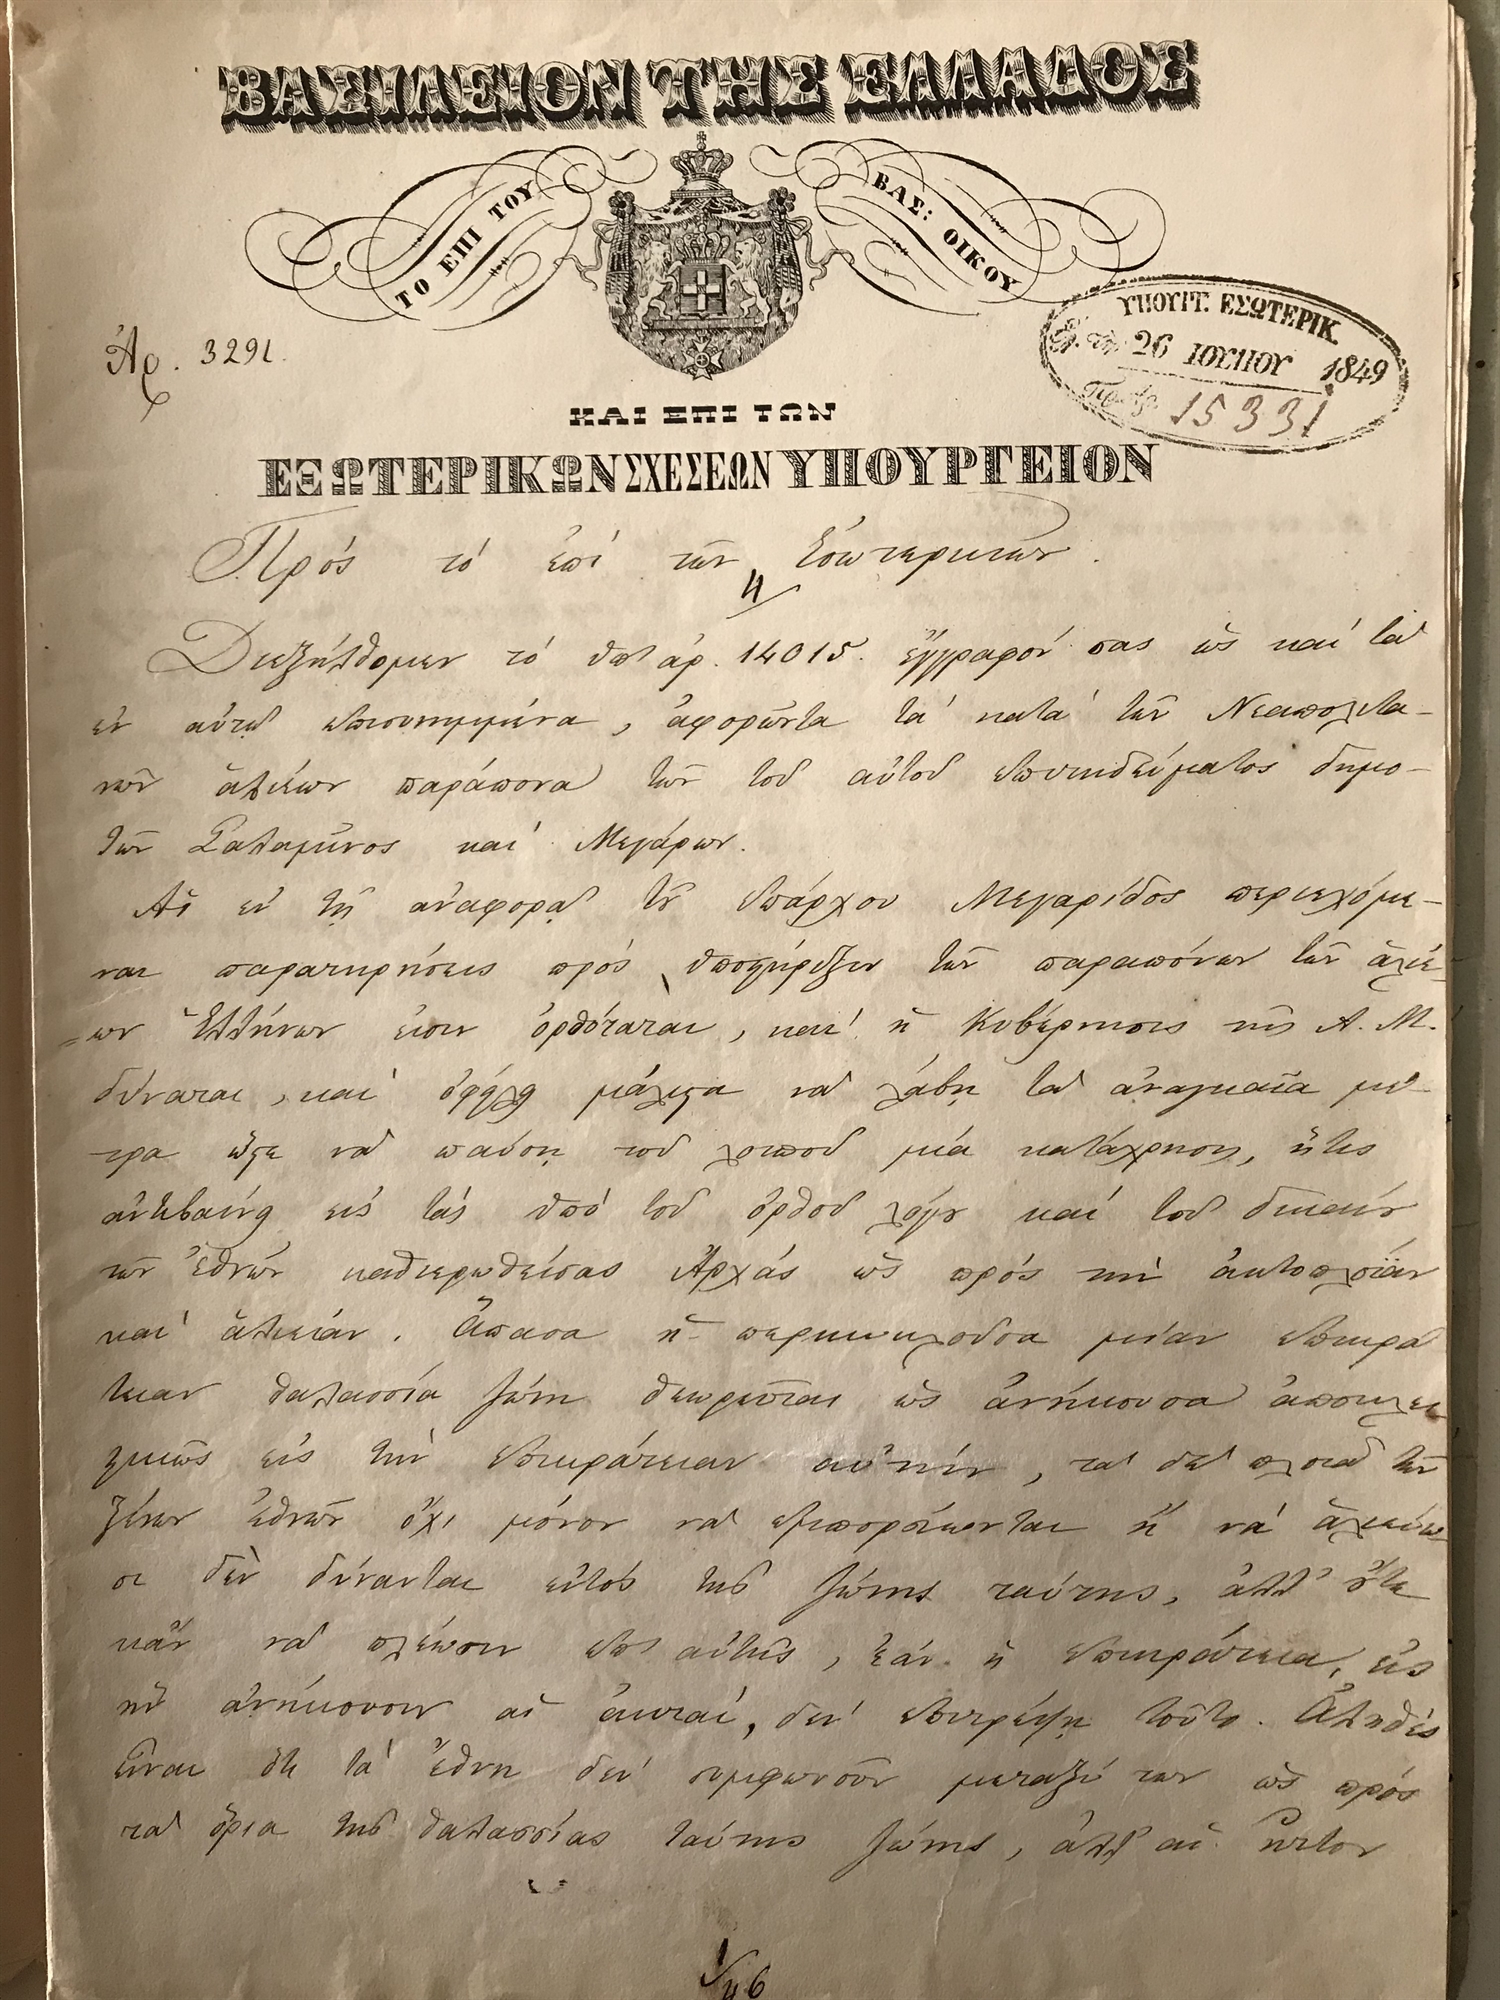 ΒΑΣΙΛΕΙΟΝ ΤΗΣ ΕΛΛΑΔΟΣ
ΤΟ ΕΠΙ ΤΟΥ ΒΑΣ: ΟΙΚΟΥ
Ἀρ. 3291.
ΥΠΟΥΡΓ. ΕΣΩΤΕΡΙΚ.
26 ΙΟΥΝΙΟΥ 1849
15331
ΚΑΙ ΕΠΙ ΤΩΝ
ΕΞΩΤΕΡΙΚΩΝ ΣΧΕΣΕΩΝ ΥΠΟΥΡΓΕΙΟΝ
Πρός τό ἐπί τῶν Ἐσωτερικῶν.
Διεξήλθομεν τό ὑπ' ἀρ. 14015. ἔγγραφόν σας ὡς καί τά
ἐν αὐτῷ ἐπισυνημμένα, ἀφορῶντα τά κατά τῶν Νεαπολιτα-
νῶν ἁλιέων παράπονα τῶν τοῦ αὐτοῦ ἐπιτηδεύματος δημο-
τῶν Σαλαμῖνος καί Μεγάρων.
Αἱ ἐν τῇ ἀναφορᾷ τοῦ Ἐπάρχου Μεγαρίδος περιεχόμε-
ναι παρατηρήσεις πρός ὑποστήριξιν τῶν παραπόνων τῶν ἁλιέ-
=ων Ἑλλήνων εἰσιν ὀρθόταται, καί ἡ Κυβέρνησις τῆς Α. Μ.
δύναται, καί ὀφείλει μάλιστα νά λάβῃ τά ἀναγκαῖα μέ-
τρα ὥστε νά παύσῃ τοῦ λοιποῦ μία κατάχρησις, ἥτις
ἀντιβαίνει εἰς τάς ὑπό τοῦ ὀρθοῦ λόγου καί τοῦ δικαίου
τῶν ἐθνῶν καθιερωθείσας Ἀρχάς ὡς πρός τήν ἀκτοπλοΐαν
καί ἁλιείαν. Ἅπασα ἡ περικυκλοῦσα μίαν ἐπικρά
τειαν θαλασσία ζώνη θεωρεῖται ὡς ἀνήκουσα ἀποκλει
στικῶς εἰς τήν ἐπικράτειαν αὐτήν, τά δέ πλοῖα τῶν
ξένων ἐθνῶν ὄχι μόνον νά ἐμπορεύωνται ἤ νά ἁλιεύω
σι δέν δύνανται ἐντός τῆς ζώνης ταύτης, ἀλλ' οὔτε
κἄν νά πλέωσιν ἐπ' αὐτῆς, ἐάν ἡ ἐπικράτεια, εἰς
ἥν ἀνήκουσιν αἱ ἀκταί, δέν ἐπιτρέψῃ τοῦτο. Ἀληθές
εἶναι ὅτι τά ἔθνη δέν συμφωνοῦν μεταξύ των ὡς πρός
τά ὅρια τῆς θαλασσίας ταύτης ζώνης, ἀλλ' αἱ ἧττον